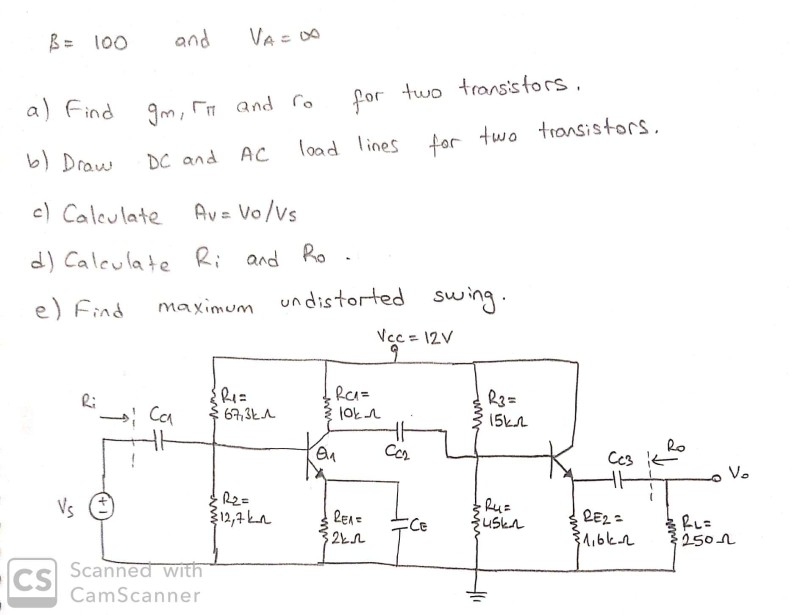 β = 100 and VA = ∞
a) Find gm, rπ and ro for two transistors.
b) Draw DC and AC load lines for two transistors.
c) Calculate Av = Vo/Vs
d) Calculate Ri and Ro.
e) Find maximum undistorted swing.
Vcc = 12V
Ri
CC1
R1=
67,3kΩ
RC1=
10kΩ
R3=
15kΩ
Q1
CC2
CC3
Ro
Vo
Vs
R2=
12,7kΩ
RE1=
2kΩ
CE
R4=
45kΩ
RE2=
1,6kΩ
RL=
250Ω
CS Scanned with
CamScanner